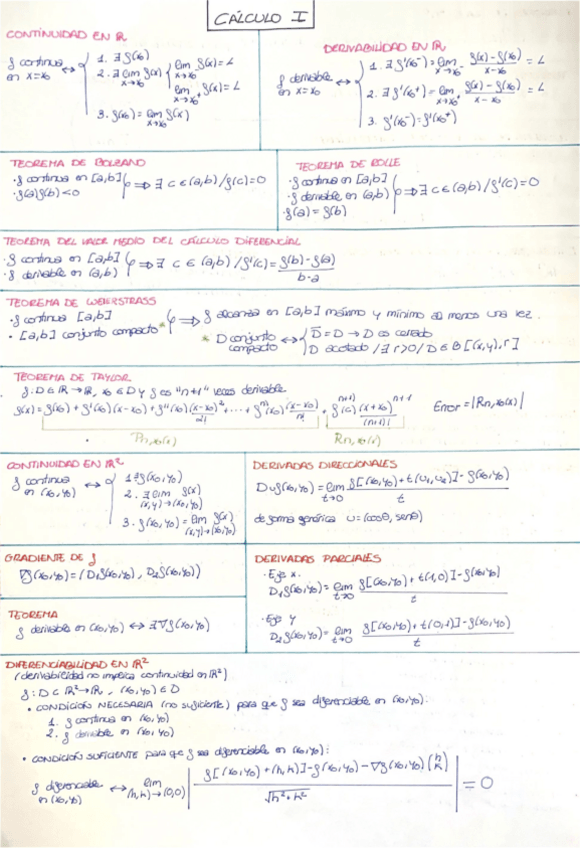 CÁLCULO I
CONTINUIDAD EN ℝ
f continua en x=x₀ ↔ { 1. ∃ f(x₀)
2. ∃ lim x→x₀ f(x) { lim x→x₀⁻ f(x) = L
lim x→x₀⁺ f(x) = L
3. f(x₀) = lim x→x₀ f(x)
DERIVABILIDAD EN ℝ
f derivable en x=x₀ ↔ { 1. ∃ f'(x₀⁻) = lim x→x₀⁻ (f(x) - f(x₀))/(x-x₀) = L
2. ∃ f'(x₀⁺) = lim x→x₀⁺ (f(x) - f(x₀))/(x-x₀) = L
3. f'(x₀⁻) = f'(x₀⁺)
TEOREMA DE BOLZANO
· f continua en [a,b]
· f(a)f(b) < 0 } ⇒ ∃ c ∈ (a,b) / f(c) = 0
TEOREMA DE ROLLE
· f continua en [a,b]
· f derivable en (a,b) } ⇒ ∃ c ∈ (a,b) / f'(c) = 0
· f(a) = f(b)
TEOREMA DEL VALOR MEDIO DEL CÁLCULO DIFERENCIAL
· f continua en [a,b]
· f derivable en (a,b) } ⇒ ∃ c ∈ (a,b) / f'(c) = (f(b) - f(a))/(b-a)
TEOREMA DE WEIERSTRASS
· f continua [a,b]
· [a,b] conjunto compacto* } ⇒ f alcanza en [a,b] máximo y mínimo al menos una vez.
* D conjunto compacto ↔ { D̄ = D → D es cerrado
D acotado / ∃ r>0 / D ∈ B[(x,y),r]
TEOREMA DE TAYLOR
f: D ⊂ ℝ → ℝ, x₀ ∈ D y f es "n+1" veces derivable
f(x) = f(x₀) + f'(x₀)(x-x₀) + f''(x₀)(x-x₀)²/2! + ... + fⁿ(x₀)(x-x₀)ⁿ/n! + f⁽ⁿ⁺¹⁾(c)(x+x₀)ⁿ⁺¹/(n+1)!
Error = |Rn,x₀(x)|
Pn,x₀(x)
Rn,x₀(x)
CONTINUIDAD EN ℝ²
f continua en (x₀,y₀) ↔ { 1. ∃ f(x₀,y₀)
2. ∃ lim (x,y)→(x₀,y₀) f(x)
3. f(x₀,y₀) = lim (x,y)→(x₀,y₀) f(x)
DERIVADAS DIRECCIONALES
Duf(x₀,y₀) = lim t→0 (f[(x₀,y₀) + t(u₁,u₂)] - f(x₀,y₀))/t
de forma genérica u = (cosθ, senθ)
GRADIENTE DE f
∇f(x₀,y₀) = (D₁f(x₀,y₀), D₂f(x₀,y₀))
DERIVADAS PARCIALES
· Eje x.
D₁f(x₀,y₀) = lim t→0 (f[(x₀,y₀) + t(1,0)] - f(x₀,y₀))/t
· Eje y
D₂f(x₀,y₀) = lim t→0 (f[(x₀,y₀) + t(0,1)] - f(x₀,y₀))/t
TEOREMA
f derivable en (x₀,y₀) ↔ ∃ ∇f(x₀,y₀)
DIFERENCIABILIDAD EN ℝ²
(derivabilidad no implica continuidad en ℝ²)
f: D ⊂ ℝ² → ℝ, (x₀,y₀) ∈ D
• CONDICIÓN NECESARIA (no suficiente) para que f sea diferenciable en (x₀,y₀):
1. f continua en (x₀,y₀)
2. f derivable en (x₀,y₀)
• CONDICIÓN SUFICIENTE para que f sea diferenciable en (x₀,y₀):
f diferenciable en (x₀,y₀) ↔ lim (h,k)→(0,0) | (f[(x₀,y₀) + (h,k)] - f(x₀,y₀) - ∇f(x₀,y₀)(h k))/√(h²+k²) | = 0